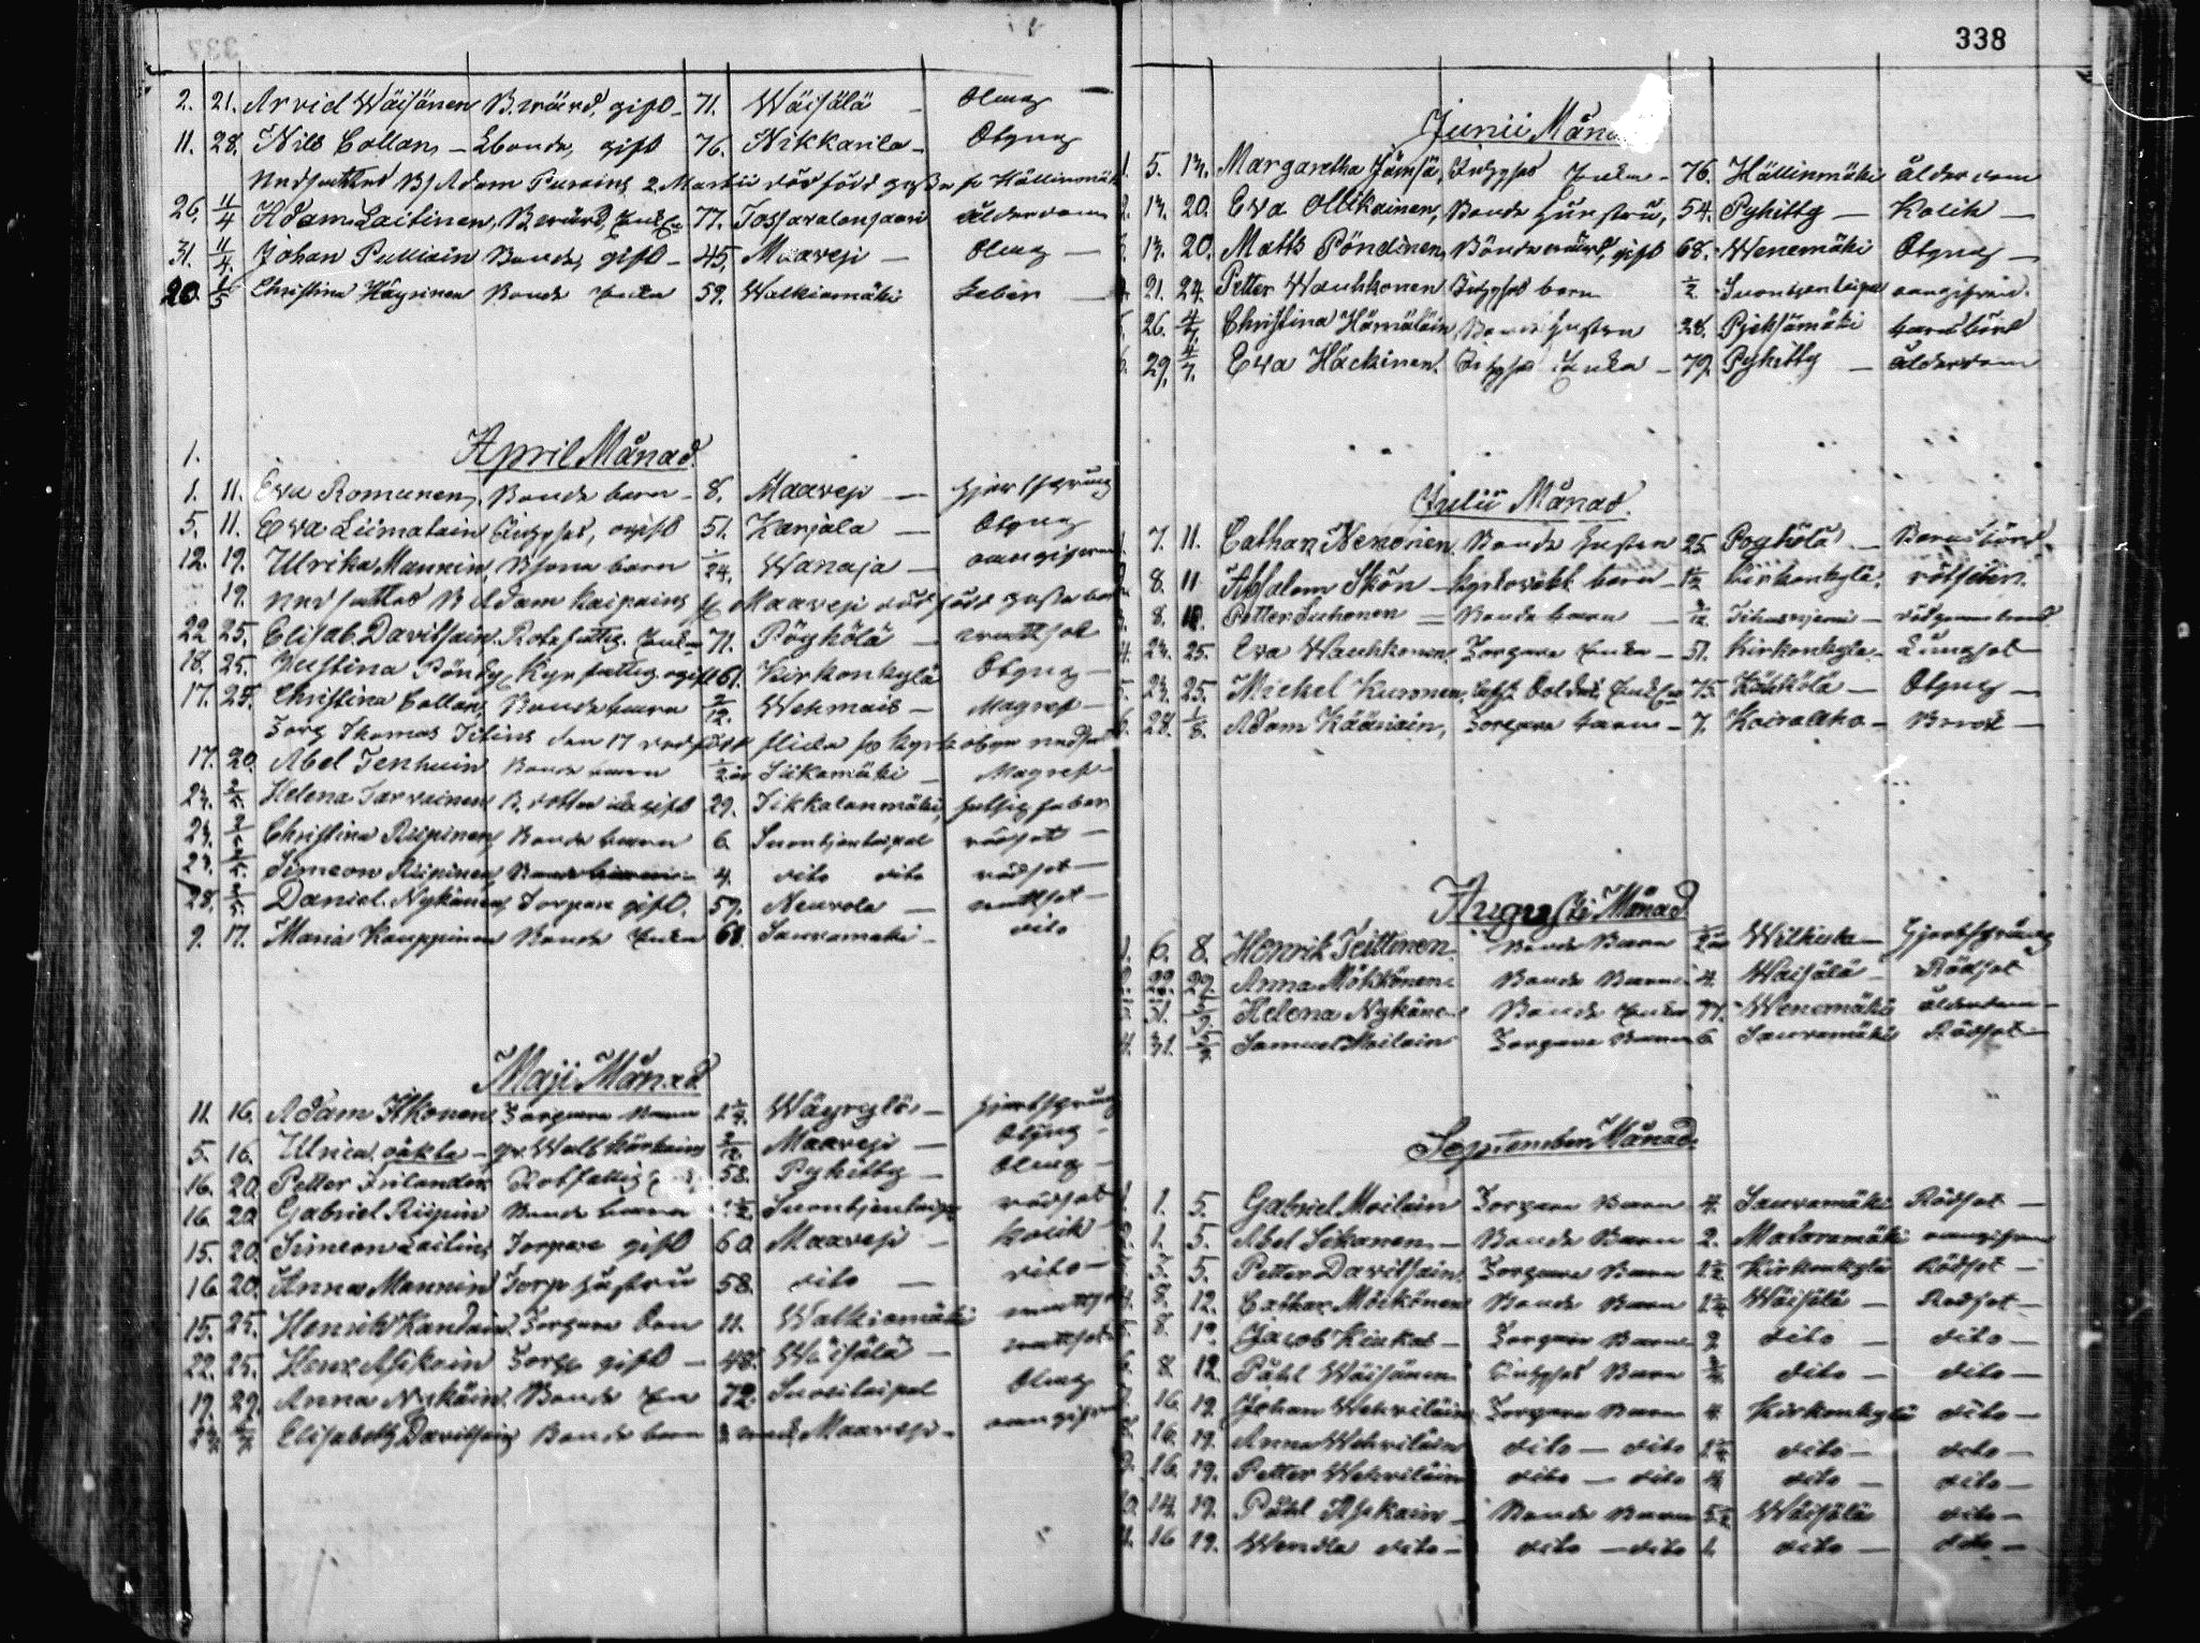 337
2. 21. Arvid Wäisänen B.wärd, gift 71. Wäisälä – Olmg
11. 28. Nils Collan – Lbonde, gift 76. Nikkarila – Obgmg
Nedsattes Bs Adam 2 Martii död född
26. 11/4 Adam Laitinen, B.wärd, Enkl. 77. Tossavalansaari ålderdom
31. 11/4 Johan Pulliain Bonde, gift – 45. Maavesi – Olmg –
20. 1/5 Christina Häyrinen Bonde Enka 59. Walkiamäki Feber –
April Månad.
1.
1. 11. Eva Romanen, Bonde barn – 8. Maavesi – hjertsprung
5. 11. Eva Liimatain Inhyses, ogift 51. Karjala – Obgmg
12. 19. Ulrika Mannin, Bsons barn 1/24. Wanaja – oangifven
19. Nedsattes B Adam Kaipains fr Maavesi död född
22 25. Elisab. Davitsain. Rotefattig. Enk – 71. Pöyhölä –
18. 25. Justina Pöndy, Kyrkfattig ogift 61. Kirkonkylä Obgmg –
17. 25. Christina Collan, Bonde barn 2/12. Wehmais – Magref –
Torp Thomas den 17 flicka
17. 20. Abel Tenhuin Bonde barn 1/2 år Siikamäki – Magref –
24. 2/5. Helena Tarvainen B. dotter ogift 29. Tikkalanmäki, hettig feber
24. 2/5 Christina Riipinen Bonde barn 6 Suontientaipal rödsot –
23. 2/5. Simeon Riipinen Bonde barn – 4. dito dito rödsot –
28. 2/5. Daniel Nykänen, Torpare gift. 59. Neuvola –
9. 17. Maria Kauppinen Bonde Enka 68. Sauramäki – dito
Maji Månad
11. 16. Adam Ikonen Torpare Barn Wäyrylä – hjertsprung
5. 16. Ulrica oäkta – 2/12. Maavesi – Obgmg –
16. 20 Petter Finlander Rotfattig 58. Pyhitty – Olmg –
16 20 Gabriel Riipin Bonde barn 1 1/2. Suontientaip. rödsot
15. 20. Simeon Laitin, Torpare gift 60. Maavesi – Kolik –
16 20. Anna Mannin Torp hustru 58. dito – dito –
15. 25. Henrik Torpare Son 11. Walkiamäki
22. 25. Henr Asikain Torp. gift – 48. Wäisälä –
19. 29. Anna Nykäin, Bonde Enka 72. Suovitaipal Olmg
Elisabeth Davitsain, Bonde barn Maavesi – oangifven
338
Junii Månad
1. 5. 13. Margaretha Jämsä, Inhyses Enka – 76. Hällinmäki ålderdom
2. 13. 20. Eva Ollikainen, Bonde hustru, 54. Pyhitty – Kolik –
3. 13. 20. Matts Pöndinen, Bondewärd, gift 68. Wenemäki Obgmg –
4. 21. 24. Petter Wauhkonen Inhyses barn 1/2 Suontientaipal oangifven.
5. 26. 4/7. Christina Hämäläin, Bonde hustru 28. Pieksämäki barnsbörd
6. 29. 4/7. Eva Häckinen. Inhyses Enka – 79. Pyhitty – ålderdom
Julii Månad.
1. 7. 11. Cathar. Nenonen Bonde hustru 25. Pöyhölä – Barnsbörd
2. 8. 11 Absalom Skön – barn – Kirkonkylä, rötfeber.
3. 8. 18. Petter Suhonen – Bonde barn – Tihusniemi –
4. 23. 25. Eva Wauhkonen. Torpare Enka – 51. Kirkonkylä – Lungsot
5. 23. 25. Michel Kuronen, Soldat Enkl. 75. – Obgmg –
6. 28. 1/8. Adam Kääriäin, Torpare barn – 7. Koiralaho – Bråck –
Augusti Månad
1. 6. 8. Henrik Teittinen Bonde Barn 1/2 år – Hjertsprung
2. 22. 29. Anna Mökkönen Bonde Barn 4. Waisälä – Rödsot
3. 31. 5/9. Helena Nykäne Bonde Enka 77. Wenemäki ålderdom –
4. 31. 5/9. Samuel Moilain Torpare Barn 6 Sauramäki Rödsot –
September Månad.
1. 1. 5. Gabriel Moilain Torpare Barn 4. Sauramäki Rödsot –
2. 1. 5. Abel – Bonde Barn 2. Mataramäki oangifven
3. 3. 5. Petter Davitsain. Torpare Barn 1 1/2 Kirkonkylä Rödsot –
4. 8. 12. Cathar. Möckönen Bonde Barn Wäisälä – Rödsot –
5. 8. 12. Jacob – Torpare Barn 9. dito – dito –
6. 8. 12. Påhl Wäisänen Inhyses Barn dito – dito –
7. 16. 19 Johan Wehviläin Torpare Barn 4. Kirkonkylä dito –
8. 16. 19. Anna Wehviläin dito – dito dito – dito –
9. 16. 19. Petter Wehviläin dito – dito dito – dito –
10. 14. 19. Påhl Asikain – Bonde Barn Wäisälä dito –
11. 16 19. Wendla dito – dito – dito 1. dito – dito –